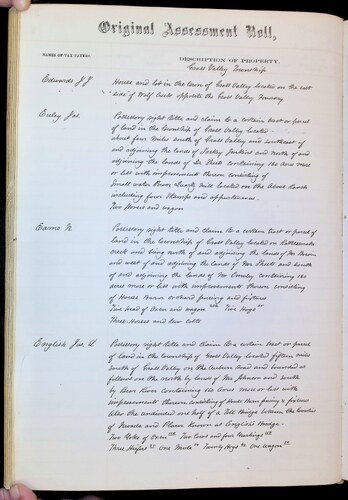 Original Assessment Roll,
NAMES OF TAX PAYERS.
DESCRIPTION OF PROPERTY.
Grass Valley Township
Edwards J. J.
House and lot in the town of Grass Valley located on the east
side of Wolf Creek opposite the Grass Valley Foundry
Euley Jas.
Possessory right title and claim to a certain tract or parcel
of land in the township of Grass Valley located
about four miles south of Grass Valley and northeast of
and adjoining the lands of and north of and
adjoining the lands of containing 160 acres more
or less with improvements thereon consisting of
water Power Quartz Mill located on the above lands
including four Stamps and appurtenances.
Two Horses and wagon
Eams N.
Possessory right title and claim to a certain tract or parcel
of land in the township of Grass Valley located on Rattlesnake
creek and being north of and adjoining the lands of Mr
and west of and adjoining the lands of Mr and south
of and adjoining the lands of Mr containing 160
acres more or less with improvements thereon consisting
of House Barn orchard fencing and fixtures
Two head of Oxen and wagon Five Hogs
Three Horses and two colts
English Jas. L.
Possessory right title and claim to a certain tract or parcel
of land in the township of Grass Valley located fifteen miles
South of Grass Valley on the Auburn Road and bounded as
follows on the north by lands of Mr Johnson and south
by Bear River containing 160 acres more or less with
improvements thereon consisting of House Barn fencing & fixtures
Also the undivided one half of a Toll Bridge between the counties
of Nevada and Placer Known as English's Bridge.
Two Yokes of Oxen Two Cows and four Yearlings
Three Heifers One Mule Twenty Hogs One wagon